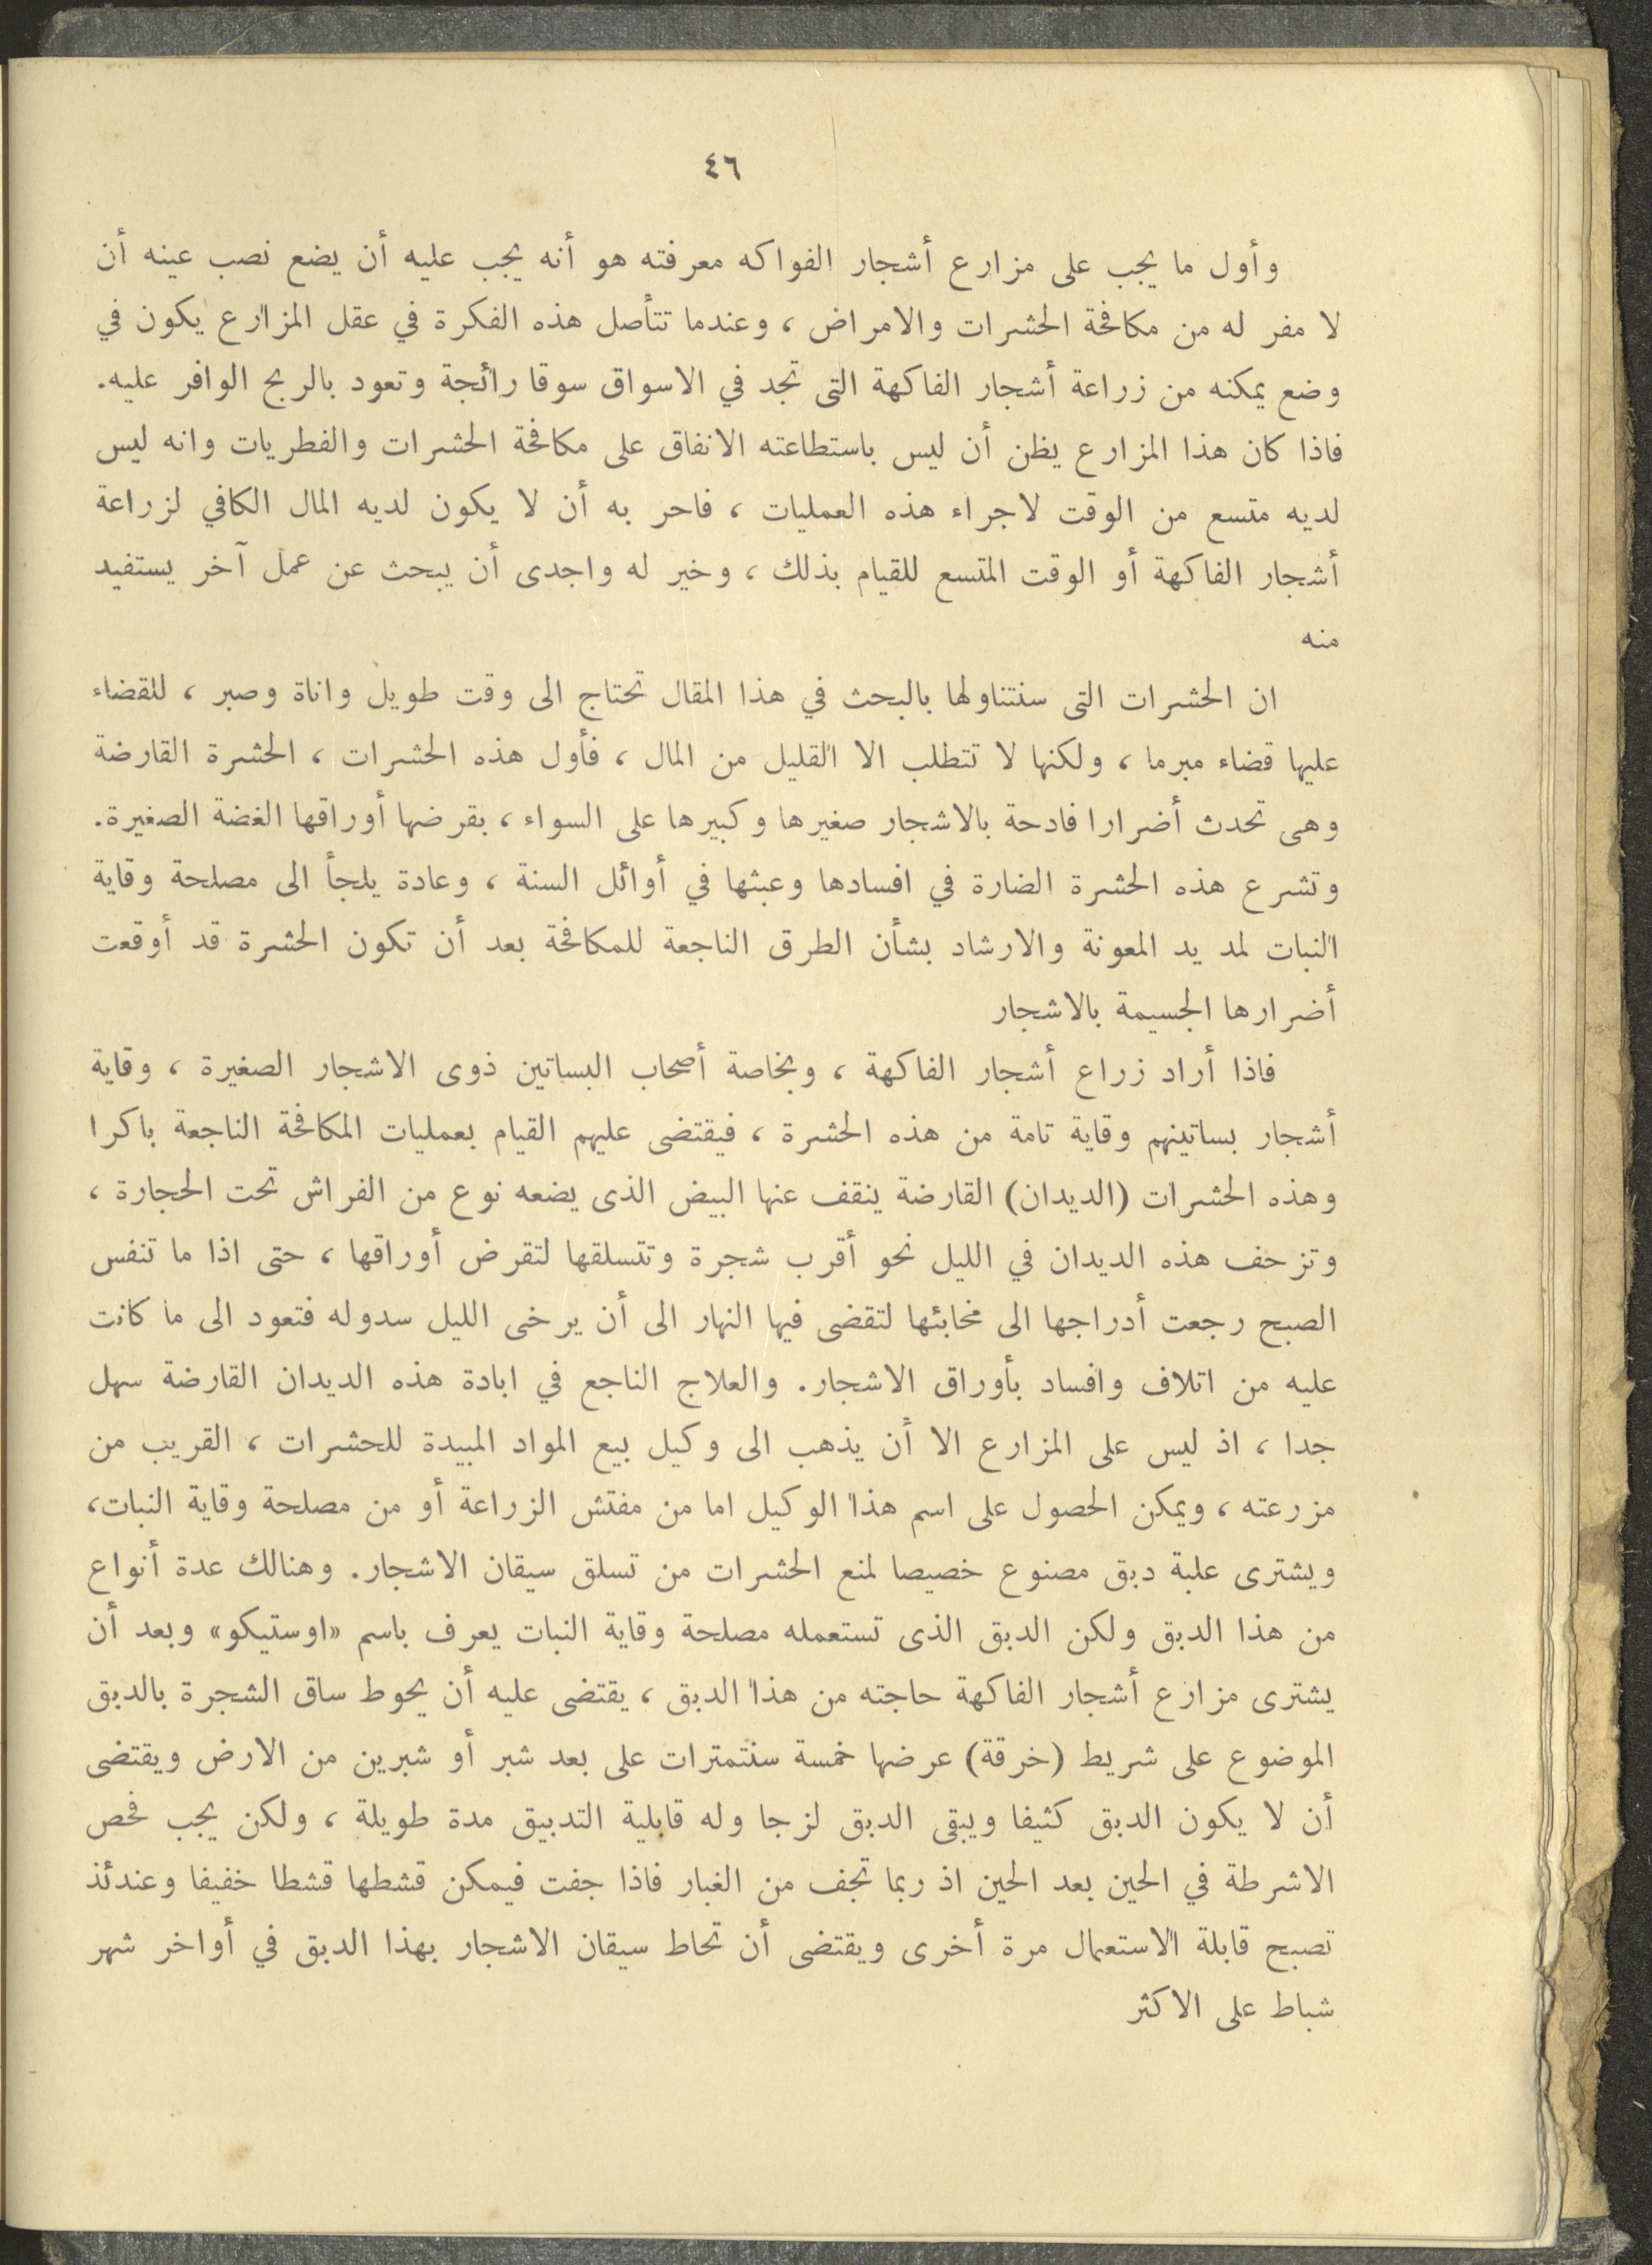 ٤٦
وأول ما يجب على مزارع أشجار الفواكه معرفته هو أنه يجب عليه أن يضع نصب عينه أن
لا مفر له من مكافحة الحشرات والامراض ، وعندما تتأصل هذه الفكرة في عقل المزارع يكون في
وضع يمكنه من زراعة أشجار الفاكهة التى تجد في الاسواق سوقا رائجة وتعود بالربح الوافر عليه.
فاذا كان هذا المزارع يظن أن ليس باستطاعته الانفاق على مكافحة الحشرات والفطريات وانه ليس
لديه متسع من الوقت لاجراء هذه العمليات ، فاحر به أن لا يكون لديه المال الكافي لزراعة
أشجار الفاكهة أو الوقت المتسع للقيام بذلك ، وخير له واجدى أن يبحث عن عمل آخر يستفيد
منه
ان الحشرات التى سنتناولها بالبحث في هذا المقال تحتاج الى وقت طويل واناة وصبر ، للقضاء
عليها قضاء مبرما ، ولكنها لا تتطلب الا القليل من المال ، فأول هذه الحشرات ، الحشرة القارضة
وهى تحدث أضرارا فادحة بالاشجار صغيرها وكبيرها على السواء ، بقرضها أوراقها الغضة الصغيرة.
وتشرع هذه الحشرة الضارة في افسادها وعبثها في أوائل السنة ، وعادة يلجأ الى مصلحة وقاية
النبات لمد يد المعونة والارشاد بشأن الطرق الناجعة للمكافحة بعد أن تكون الحشرة قد أوقعت
أضرارها الجسيمة بالاشجار
فاذا أراد زراع أشجار الفاكهة ، وبخاصة أصحاب البساتين ذوى الاشجار الصغيرة ، وقاية
أشجار بساتينهم وقاية تامة من هذه الحشرة ، فيقتضى عليهم القيام بعمليات المكافحة الناجعة باكرا
وهذه الحشرات (الديدان) القارضة ينقف عنها البيض الذى يضعه نوع من الفراش تحت الحجارة ،
وتزحف هذه الديدان في الليل نحو أقرب شجرة وتتسلقها لتقرض أوراقها ، حتى اذا ما تنفس
الصبح رجعت أدراجها الى مخابئها لتقضى فيها النهار الى أن يرخى الليل سدوله فتعود الى ما كانت
عليه من اتلاف وافساد بأوراق الاشجار. والعلاج الناجع في ابادة هذه الديدان القارضة سهل
جدا ، اذ ليس على المزارع الا أن يذهب الى وكيل بيع المواد المبيدة للحشرات ، القريب من
مزرعته ، ويمكن الحصول على اسم هذا الوكيل اما من مفتش الزراعة أو من مصلحة وقاية النبات،
ويشترى علبة دبق مصنوع خصيصا لمنع الحشرات من تسلق سيقان الاشجار. وهنالك عدة أنواع
من هذا الدبق ولكن الدبق الذى تستعمله مصلحة وقاية النبات يعرف باسم «اوستيكو» وبعد أن
يشترى مزارع أشجار الفاكهة حاجته من هذا الدبق ، يقتضى عليه أن يحوط ساق الشجرة بالدبق
الموضوع على شريط (خرقة) عرضها خمسة سنتمترات على بعد شبر أو شبرين من الارض ويقتضى
أن لا يكون الدبق كثيفا ويبقى الدبق لزجا وله قابلية التدبيق مدة طويلة ، ولكن يجب فحص
الاشرطة في الحين بعد الحين اذ ربما تجف من الغبار فاذا جفت فيمكن قشطها قشطا خفيفا وعندئذ
تصبح قابلة الاستعمال مرة أخرى ويقتضى أن تحاط سيقان الاشجار بهذا الدبق في أواخر شهر
شباط على الاكثر